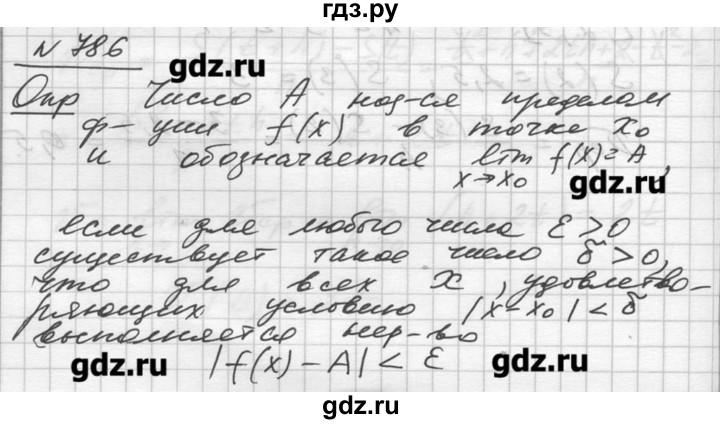 гдз.ру
N 786
gdz.ru
Опр Число A наз-ся пределом
ф-ции f(x) в точке x₀
и обозначается lim f(x)=A,
x→x₀
gdz.ru
если для любого числа ε>0
существует такое число δ>0,
что для всех x, удовлетво-
ряющих условию |x-x₀|<δ
выполняется нер-во
gdz.ru |f(x)-A|<ε gdz.ru
gdz.ru